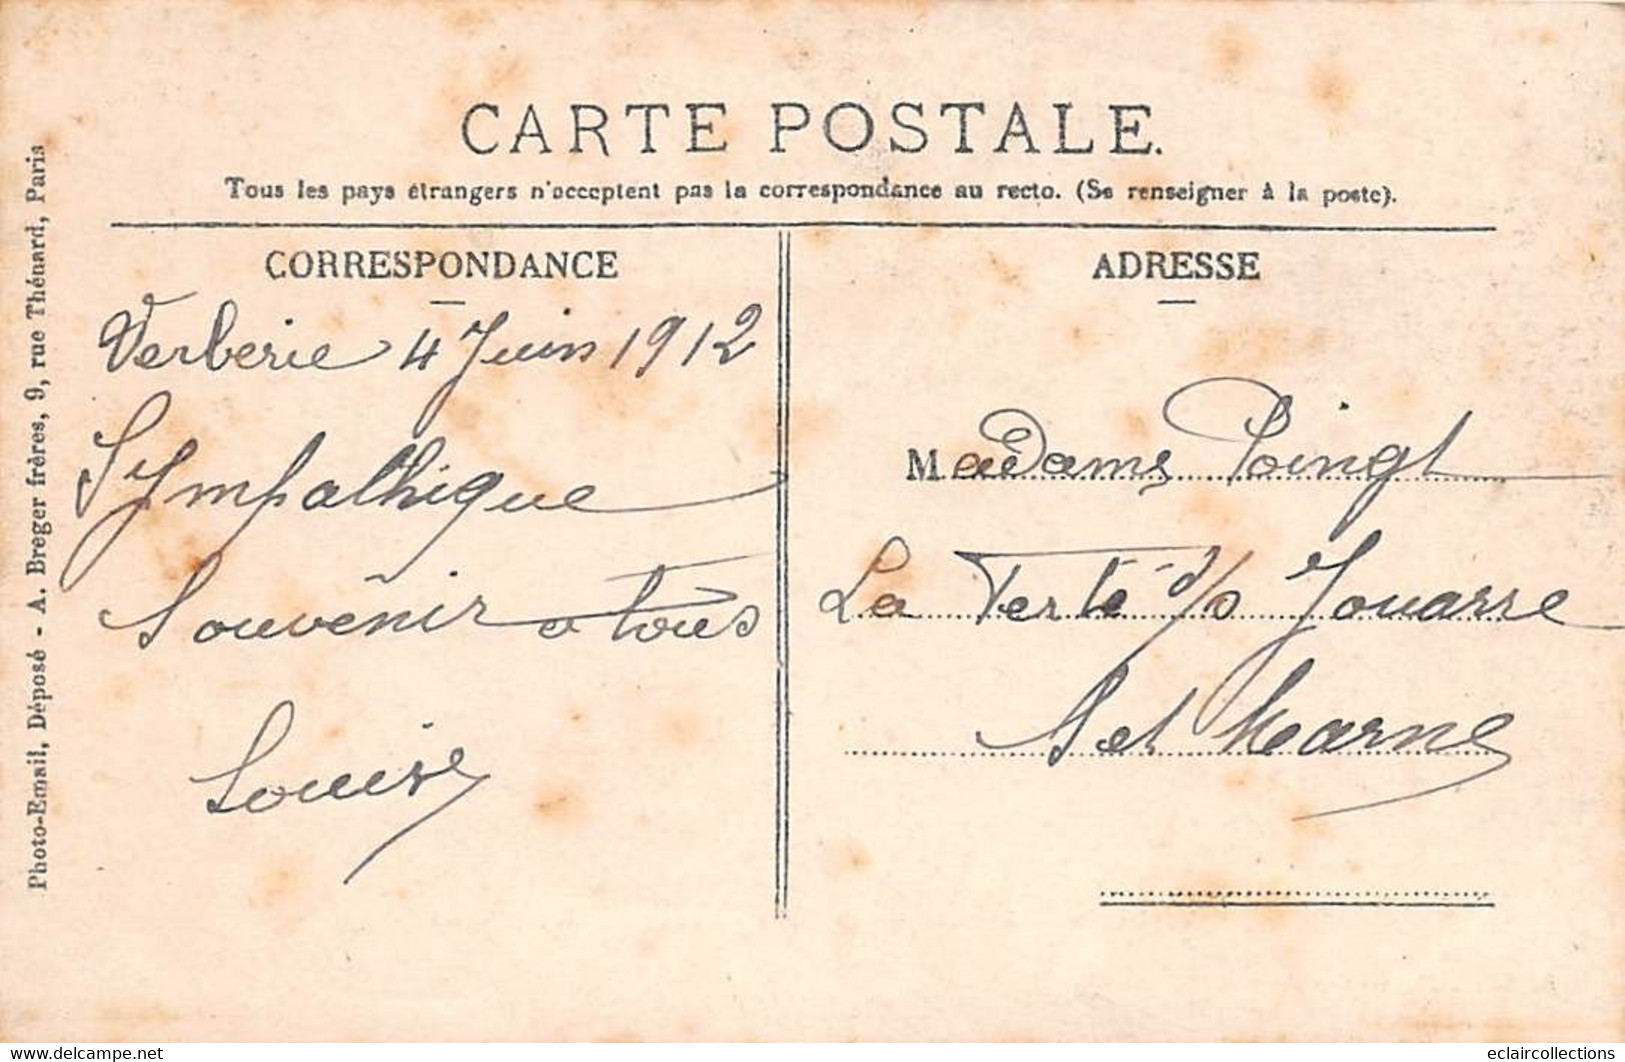 CARTE POSTALE.
Tous les pays étrangers n'acceptent pas la correspondance au recto. (Se renseigner à la poste).
CORRESPONDANCE
Verberie 4 Juin 1912
Sympathique
Souvenir a tous
Louise
ADRESSE
Madame Poingt
La Ferté s/s Jouarre
S et Marne
Photo-Email, Déposé - A. Breger frères, 9, rue Thénard, Paris
delcampe.net
eclaircollections